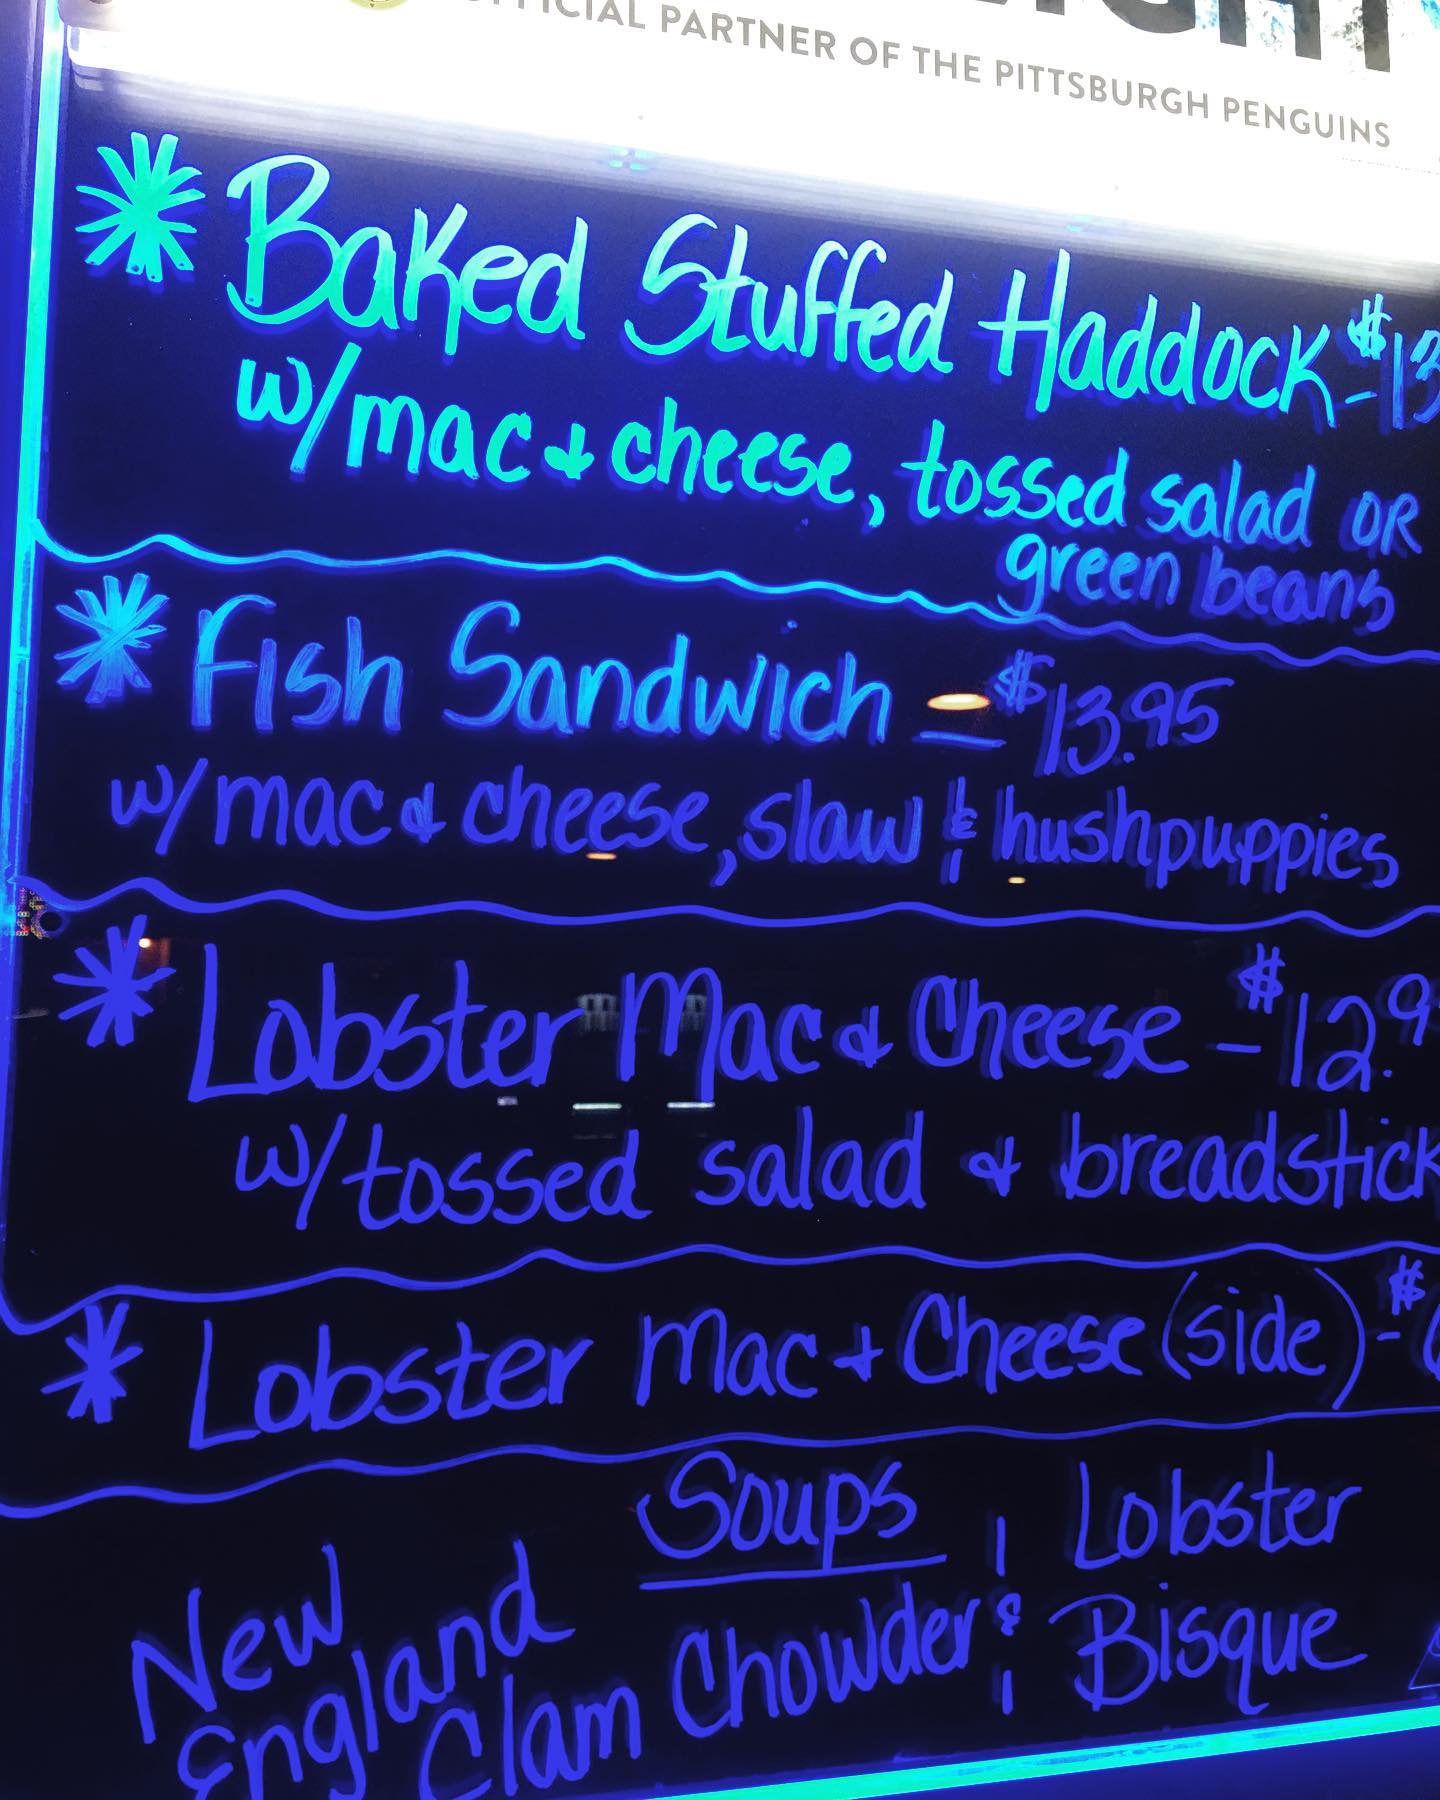 OFFICIAL PARTNER OF THE PITTSBURGH PENGUINS
* Baked Stuffed Haddock - $13
w/mac & cheese, tossed salad OR
green beans
* Fish Sandwich - $13.95
w/mac & cheese, slaw & hushpuppies
* Lobster Mac & Cheese - $12.9
w/tossed salad & breadstick
* Lobster Mac + Cheese (side) - $
Soups
New England Clam Chowder & Lobster Bisque